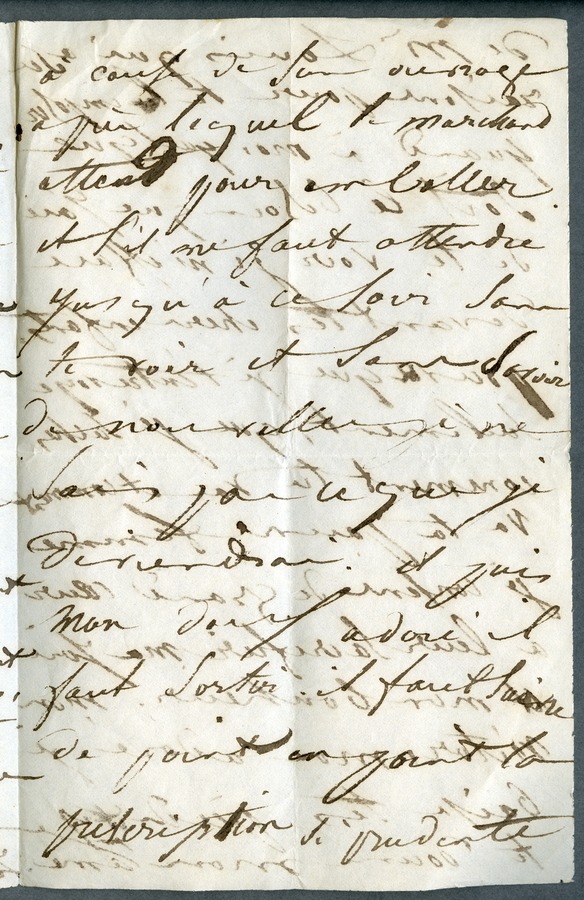 a cause de son ouvrage
après lequel le marchand
attend pour emballer
et s'il me faut attendre
jusqu'à ce soir sans
te voir et sans savoir
de nouvelles je ne
sais pas ce que je
deviendrai. et puis
Mon adoré il
faut sortir il faut suivre
de point en point la
prescription si prudente